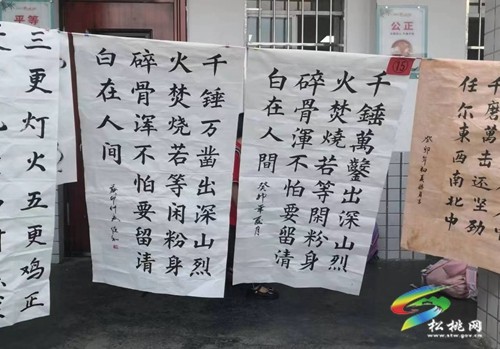 平等
公正
三更灯火五更鸡正
千锤万凿出深山烈
火焚烧若等闲粉身
碎骨浑不怕要留清
白在人间
15
千錘萬鑿出深山烈
火焚燒若等閑粉身
碎骨渾不怕要留清
白在人間
癸卯年夏月
千磨萬击还坚劲
任尔東西南北中
松桃网
www.stw.gov.cn